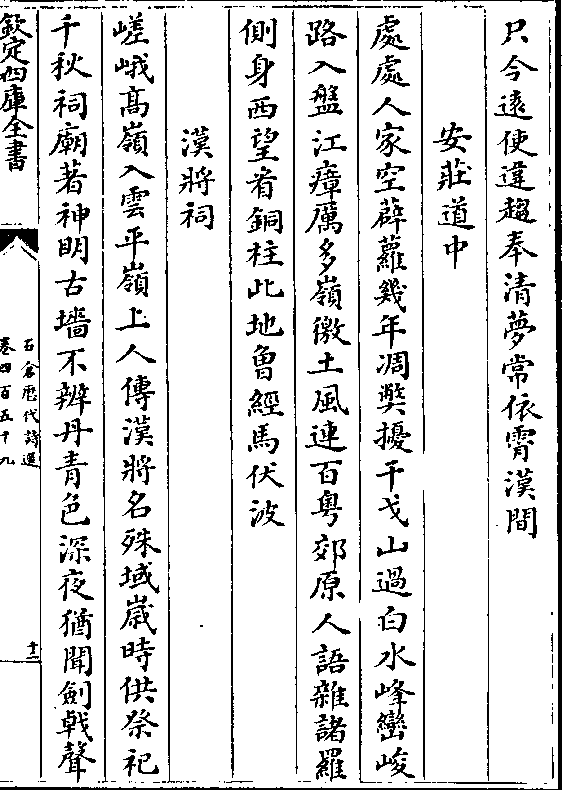 只今遠使違趨奉清夢常依霄漢間
安莊道中
處處人家空薜蘿幾年凋獘擾干戈山過白水峰巒峻
路入盤江瘴厲多嶺徼土風連百粤郊原人語雜諸羅
側身西望看銅柱此地曾經馬伏波
漢將祠
嵯峨髙嶺入雲平嶺上人傳漢將名殊域歲時供祭祀
千秋祠廟著神明古墻不辨丹青色深夜猶聞劍戟聲
欽定四庫全書
石倉歷代詩選
卷四百五十九
十二